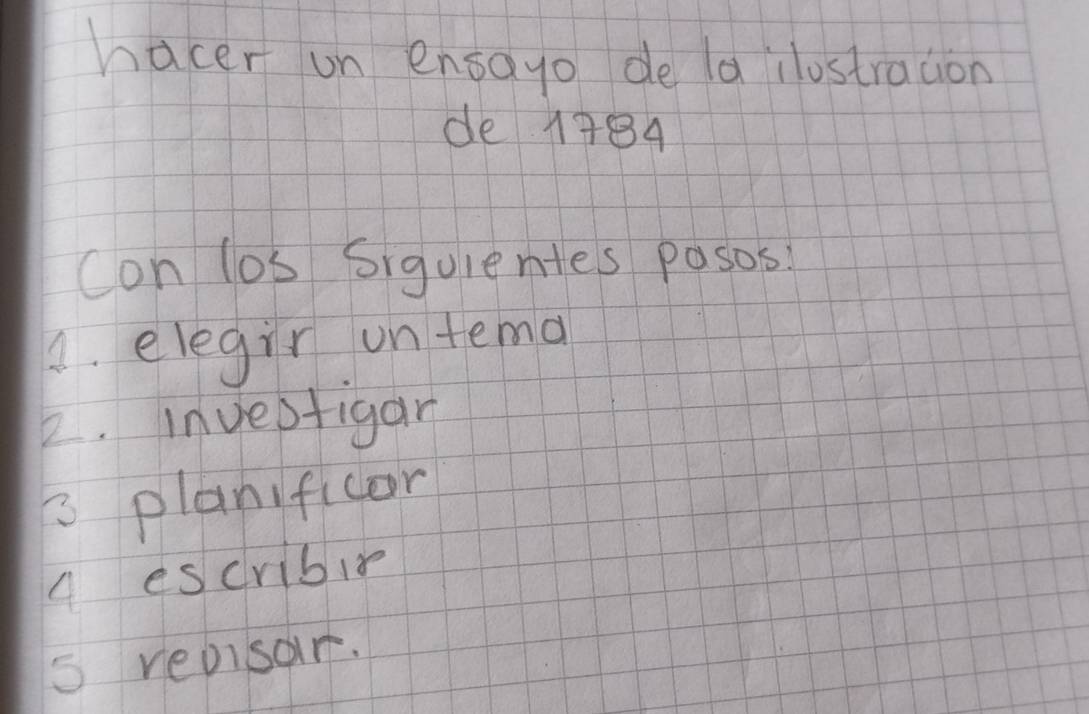 hacer un ensayo de la ilustración
de 1784
Con los siguientes pasos:
1. elegir un tema
2. investigar
3 planificar
4 escribir
5 revisar.